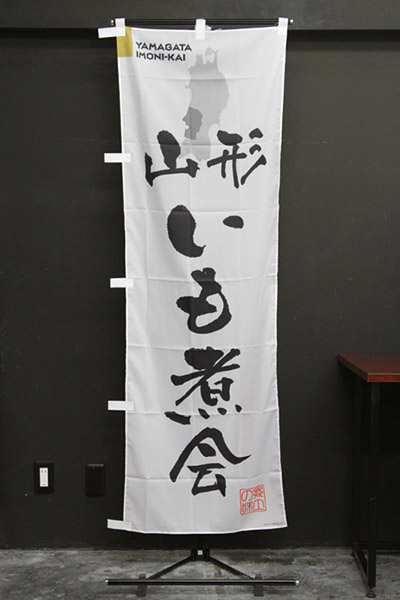 YAMAGATA
IMONI-KAI
山形
いも煮会
郷土
の味